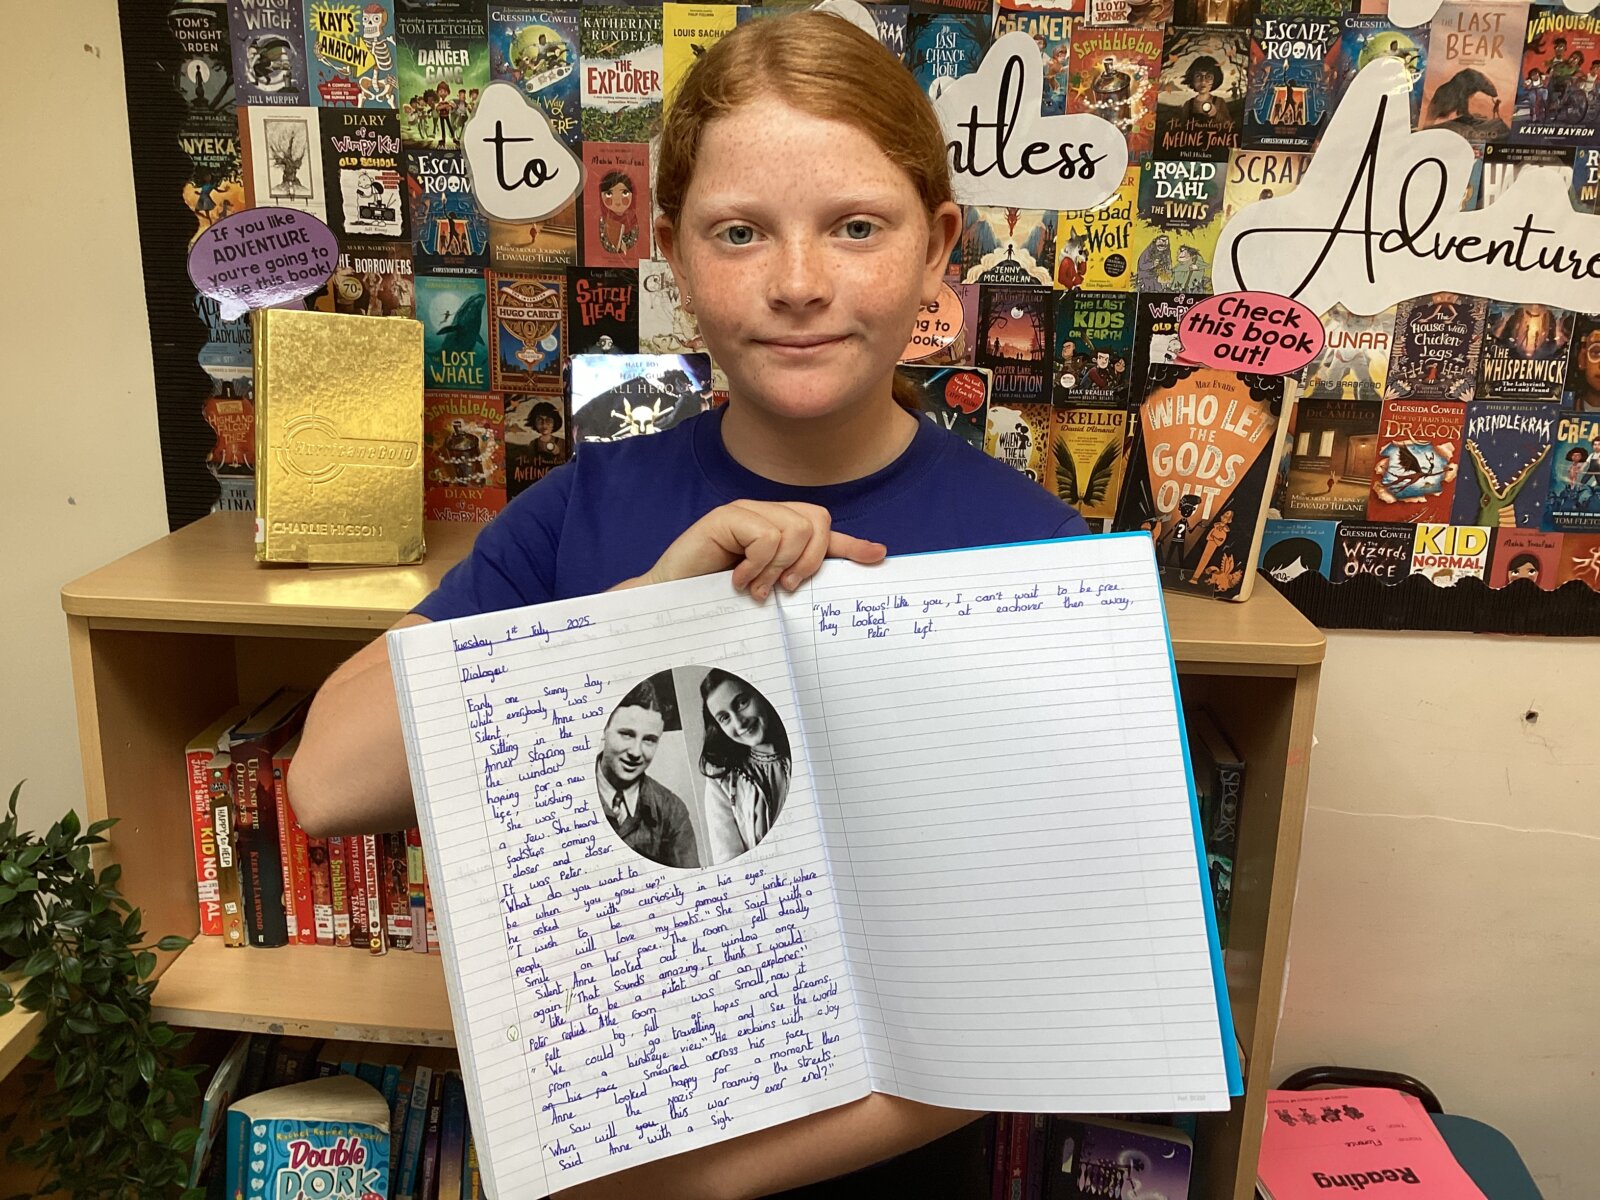 TOM'S
MIDNIGHT
GARDEN
WORST
WITCH
JILL MURPHY
KAY'S
ANATOMY
TOM FLETCHER
THE
DANGER
GANG
CRESSIDA COWELL
KATHERINE
RUNDELL
THE
EXPLORER
LOUIS SACHAR
THE
LAST
CHANCE
HOTEL
LLOYD
JONES
CREAKERS
Scribbleboy
The Haunting Of
AVELINE JONES
Phil Hickes
ESCAPE
ROOM
CHRISTOPHER EDGE
CRESSIDA COWELL
THE
LAST
BEAR
THE
VANQUISHERS
KALYNN BAYRON
NYEKA
DIARY
of a
Wimpy Kid
OLD SCHOOL
ESCAPE
ROOM
CHRISTOPHER EDGE
to
Malala Yousafzai
MIRACULOUS JOURNEY
EDWARD TULANE
ntless
Adventure
ROALD
DAHL
THE TWITS
SCRAP
Big Bad
Wolf
JENNY
MCLACHLAN
If you like
ADVENTURE
you're going to
love this book!
MARY NORTON
THE BORROWERS
THE
LOST
WHALE
HUGO CABRET
STITCH
HEAD
THE LAST
KIDS
ON EARTH
MAX BRALLIER
CRATER LAKE
EVOLUTION
Check
this book
out!
LUNAR
CHRIS BRADFORD
THE
HOUSE with
Chicken
Legs
THE
WHISPERWICK
The Labyrinth
of Lost and Found
HurricaneGold
CHARLIE HIGSON
HALF BOY
HALF GUL
ALL HERO
Scribbleboy
The Haunting Of
AVELINE
DIARY
of a
Wimpy Kid
HIGHLAND
FALCON
THE
FINAL
SKELLIG
David Almond
Maz Evans
WHO LET
THE
GODS
OUT
KATE
DICAMILLO
MIRACULOUS JOURNEY
EDWARD TULANE
CRESSIDA COWELL
HOW TO TRAIN YOUR
DRAGON
PHILIP RIDLEY
KRINDLEKRAX
THE
CREA
TOM FLETCHER
CRESSIDA COWELL
The
WIZARDS
of
ONCE
KID
NORMAL
Malala Yousafzai
Tuesday 1st July 2025
Dialogue
Early one sunny day,
while everybody was
silent, Anne was
sitting in the
Annex staring out
the window
hoping for a new
life, wishing
she was not
a Jew. She heard
footsteps coming
closer and closer.
It was Peter.
"What do you want to
be when you grow up?"
he asked with curiosity in his eyes.
"I wish to be a famous writer, where
people will love my books." She said with a
smile on her face. The room fell deadly
silent. Anne looked out the window once
again. // "That sounds amazing, I think I would
like to be a pilot or an explorer."
Peter replied. Athe room was small, now it
felt big, full of hopes and dreams.
"We could go travelling and see the world
from a birdseye view." He exclaims with a joy
on his face smeared across his face.
Anne looked happy for a moment then
saw the nazis roaming the streets.
"When will you this war ever end?"
said Anne with a sigh.
"Who knows! like you, I can't wait to be free.
They looked at eachover then away,
Peter left.
KID NORMAL
HAPPY to HELP
UKI AND THE OUTCASTS
KIERAN LARWOOD
SPOOKS
Rachel Renée Russell
Double
DORK
Name: Florence
Year: 5
Reading